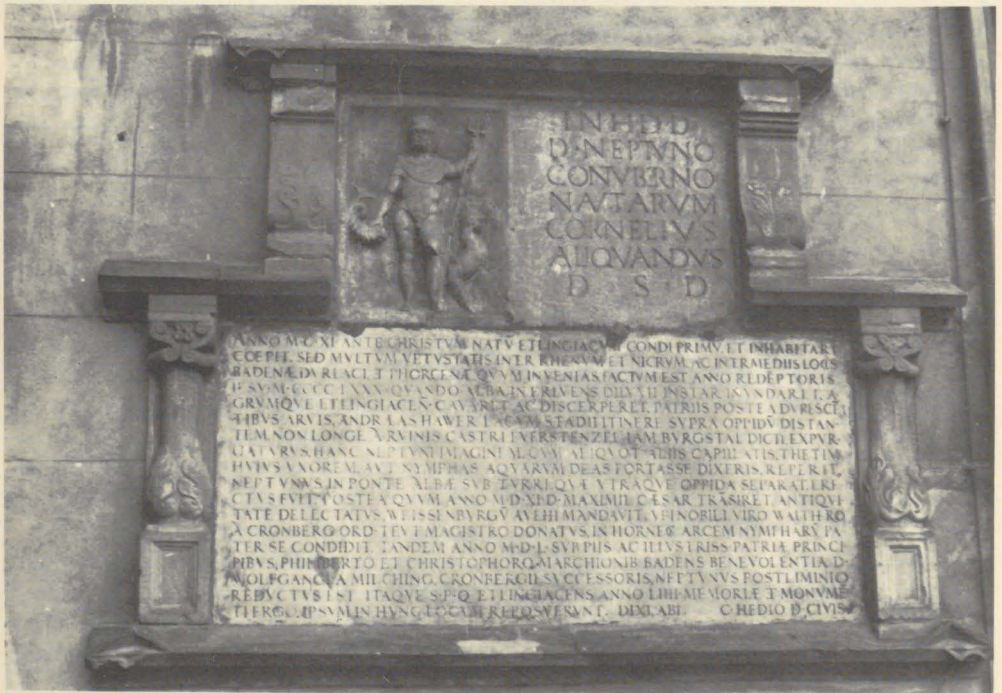 IN H D D
D NEPTVNO
CONTVBERNO
NAVTARVM
CORNELIVS
ALIQVANDVS
D S D
ANNO M C XI ANTE CHRISTVM NATV ETLINGIACVM CONDI PRIMV ET INHABITARI
COEPIT SED MVLTVM VETVSTATIS INTER RHENVM ET NICRVM AC INTERMEDIIS LOCIS
BADENÆ DVRLACI ET PHORCENÆ QVVM INVENIAS FACTVM EST ANNO REDEPTORIS
IESV M CCCC LXXX QVANDO ALBA IN FLVENS DILVII INSTAR INVNDARET A
GRVMQVE ETLINGIACEN CAVARET AC DISCERPERET PATRIIS POSTEA DVRESCE
TIBVS ARVIS ANDREAS HAWER LACVM STADII ITINERE SVPRA OPPIDV DISTAN
TEM NON LONGE A RVINIS CASTRI FVERSTENZEL IAM BVRGSTAL DICTI EXPVR
GATVRVS HANC NEPTVNI IMAGINEM QVM ALIQVOT ALIIS CAPILLATIS THETIM
HVIVS VXOREM AVT NYMPHAS AQVARVM DEAS FORTASSE DIXERIS REPERIT
NEPTVNVS IN PONTE ALBÆ SVB TVRRI QVÆ VTRAQVE OPPIDA SEPARAT ERE
CTVS FVIT POSTEA QVVM ANNO M D XI D MAXIMIL CÆSAR TRASIRET ANTIQVI
TATE DELECTATVS WEISSENBVRGV AVEHI MANDAVIT VBI NOBILI VIRO WALTHERO
A CRONBERG ORD TEVT MAGISTRO DONATVS IN HORNEC ARCEM NYMPHARV PA
TER SE CONDIDIT TANDEM ANNO M D L SVB PIIS AC ILLVSTRISS PATRIÆ PRINCI
PIBVS PHILIBERTO ET CHRISTOPHORO MARCHIONIB BADENS BENEVOLENTIA D
WOLFGANGI A MILCHING CRONBERGII SVCCESSORIS NEPTVNVS POSTLIMINIO
REDVCTVS EST ITAQVE S P Q ETLINGIACENS ANNO LIIII MEMORIÆ T MONVME
TI ERGO IPSVM IN HVNC LOCVM REPOSVERVNT DIXI ABI C HEDIO D CIVIS